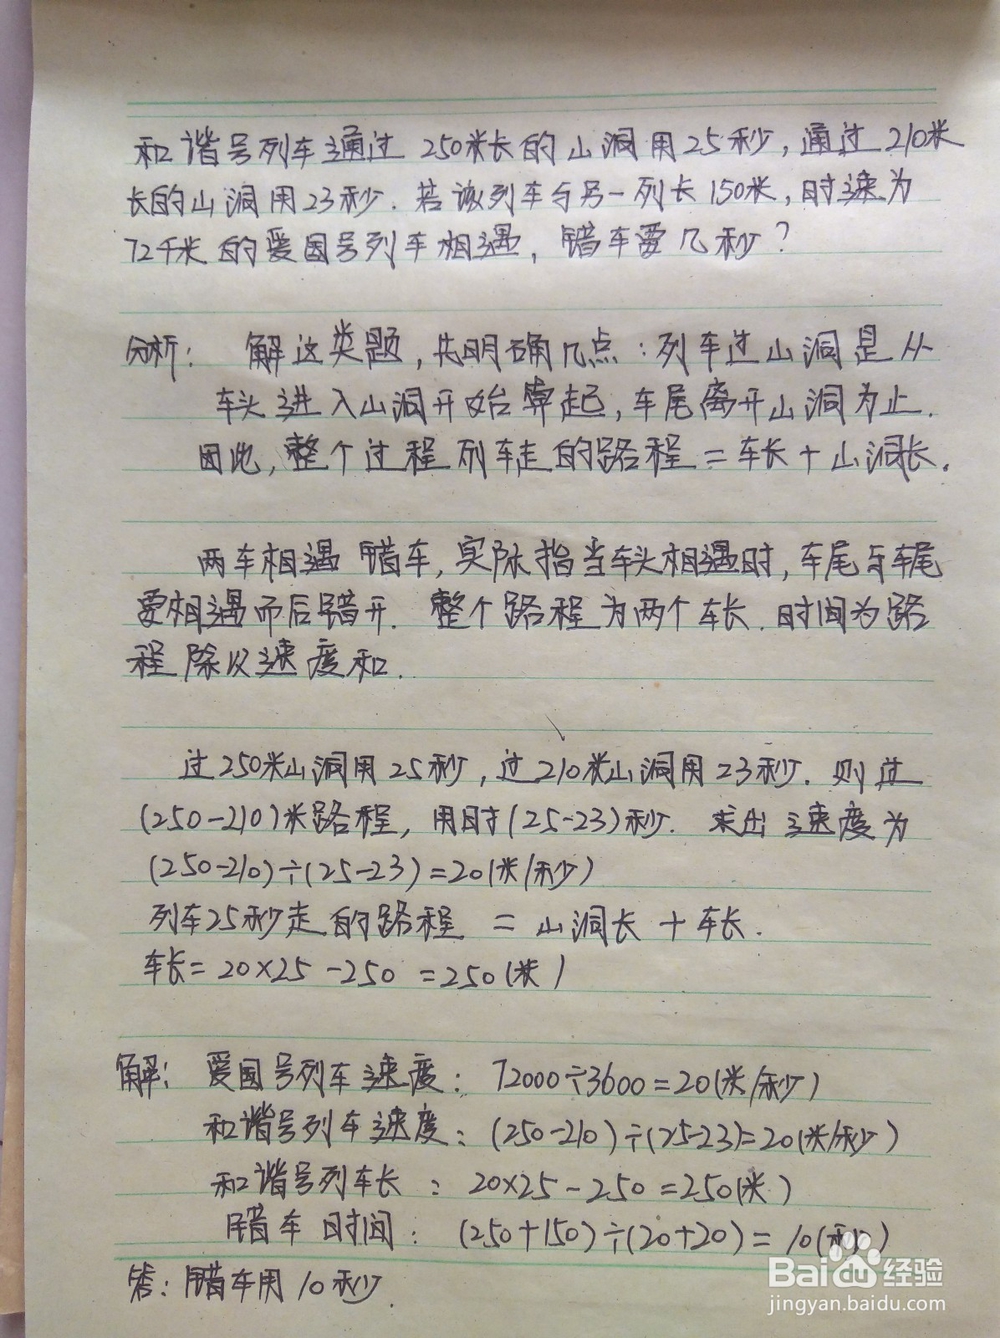 和谐号列车通过250米长的山洞用25秒,通过210米
长的山洞用23秒.若该列车与另一列长150米,时速为
72千米的爱国号列车相遇,错车要几秒?
分析: 解这类题,先明确几点:列车过山洞是从
车头进入山洞开始算起,车尾离开山洞为止.
因此,整个过程列车走的路程=车长+山洞长.
两车相遇错车,实际指当车头相遇时,车尾与车尾
要相遇而后错开.整个路程为两个车长.时间为路
程除以速度和.
过250米山洞用25秒,过210米山洞用23秒.则过
(250-210)米路程,用时(25-23)秒.求出速度为
(250-210)÷(25-23)=20(米/秒)
列车25秒走的路程=山洞长+车长.
车长=20×25-250=250(米)
解: 爱国号列车速度:72000÷3600=20(米/秒)
和谐号列车速度:(250-210)÷(25-23)=20(米/秒)
和谐号列车长:20×25-250=250(米)
错车时间:(250+150)÷(20+20)=10(秒)
答:错车用10秒
Baidu经验
jingyan.baidu.com